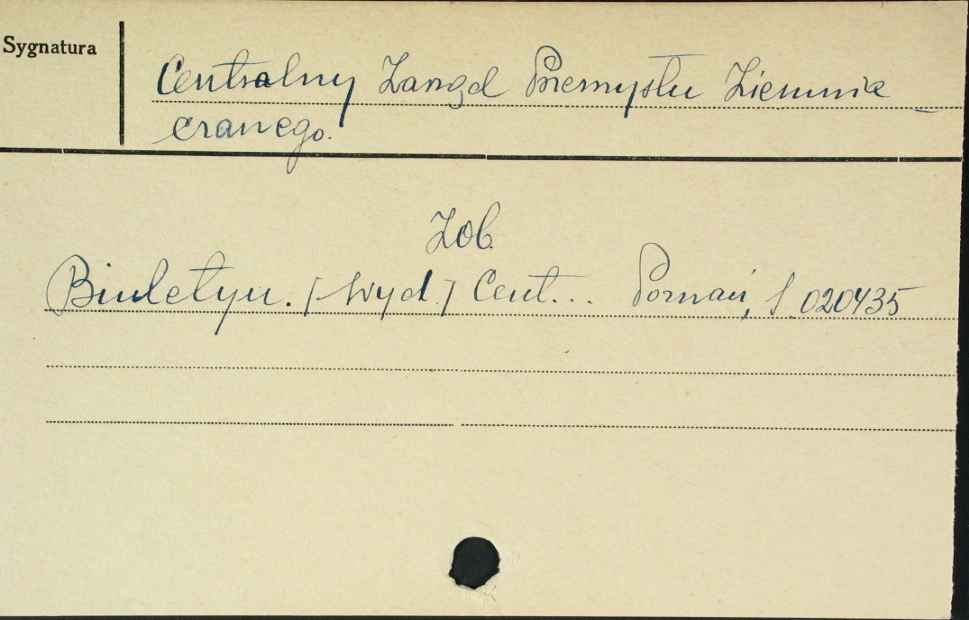 Sygnatura
Centralny Zarząd Przemysłu Ziemnia-
czanego.
Zob.
Biuletyn. [Wyd.] Cent... Poznań, S. 020435